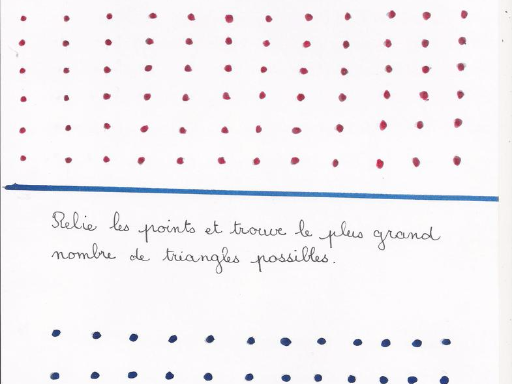 Relie les points et trouve le plus grand
nombre de triangles possibles.